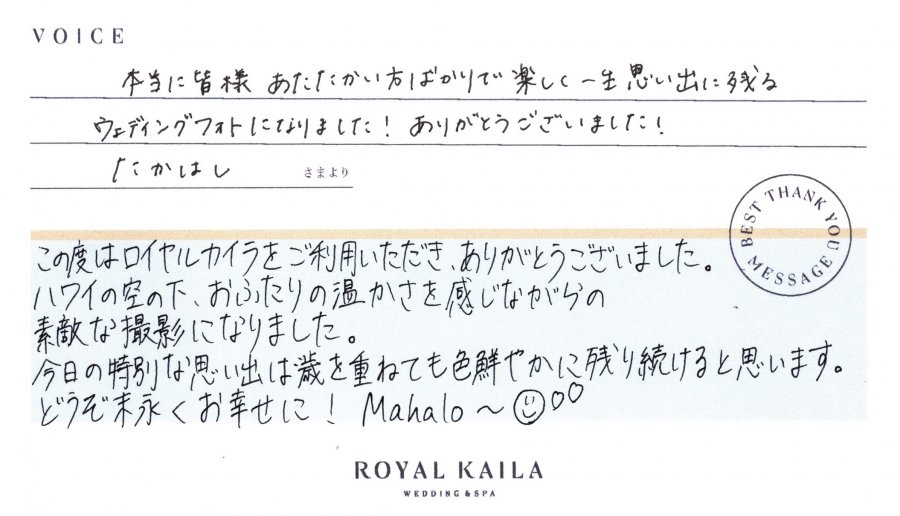 VOICE
本当に皆様 あたたかい方ばかりで楽しく一生思い出に残る
ウェディングフォトになりました! ありがとうございました!
たかはし さまより
BEST THANK YOU MESSAGE
この度はロイヤルカイラをご利用いただき、ありがとうございました。
ハワイの空の下、おふたりの温かさを感じながらの
素敵な撮影になりました。
今日の特別な思い出は歳を重ねても色鮮やかに残り続けると思います。
どうぞ末永くお幸せに! Mahalo〜
ROYAL KAILA
WEDDING & SPA